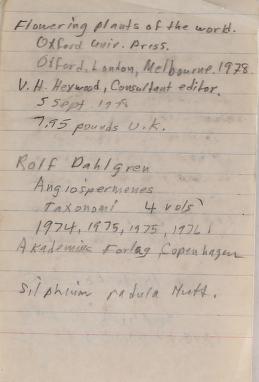 Flowering plants of the world.
Oxford Univ. Press.
Oxford, London, Melbourne, 1978
V. H. Heywood, Consultant editor.
5 Sept 1979
7.95 pounds U.K.
Rolf Dahlgren
Angiospermenes
Taxonomi 4 vols
1974, 1975, 1975, 1976
Akademisk Forlag Copenhagen
Silphium radula Nutt.